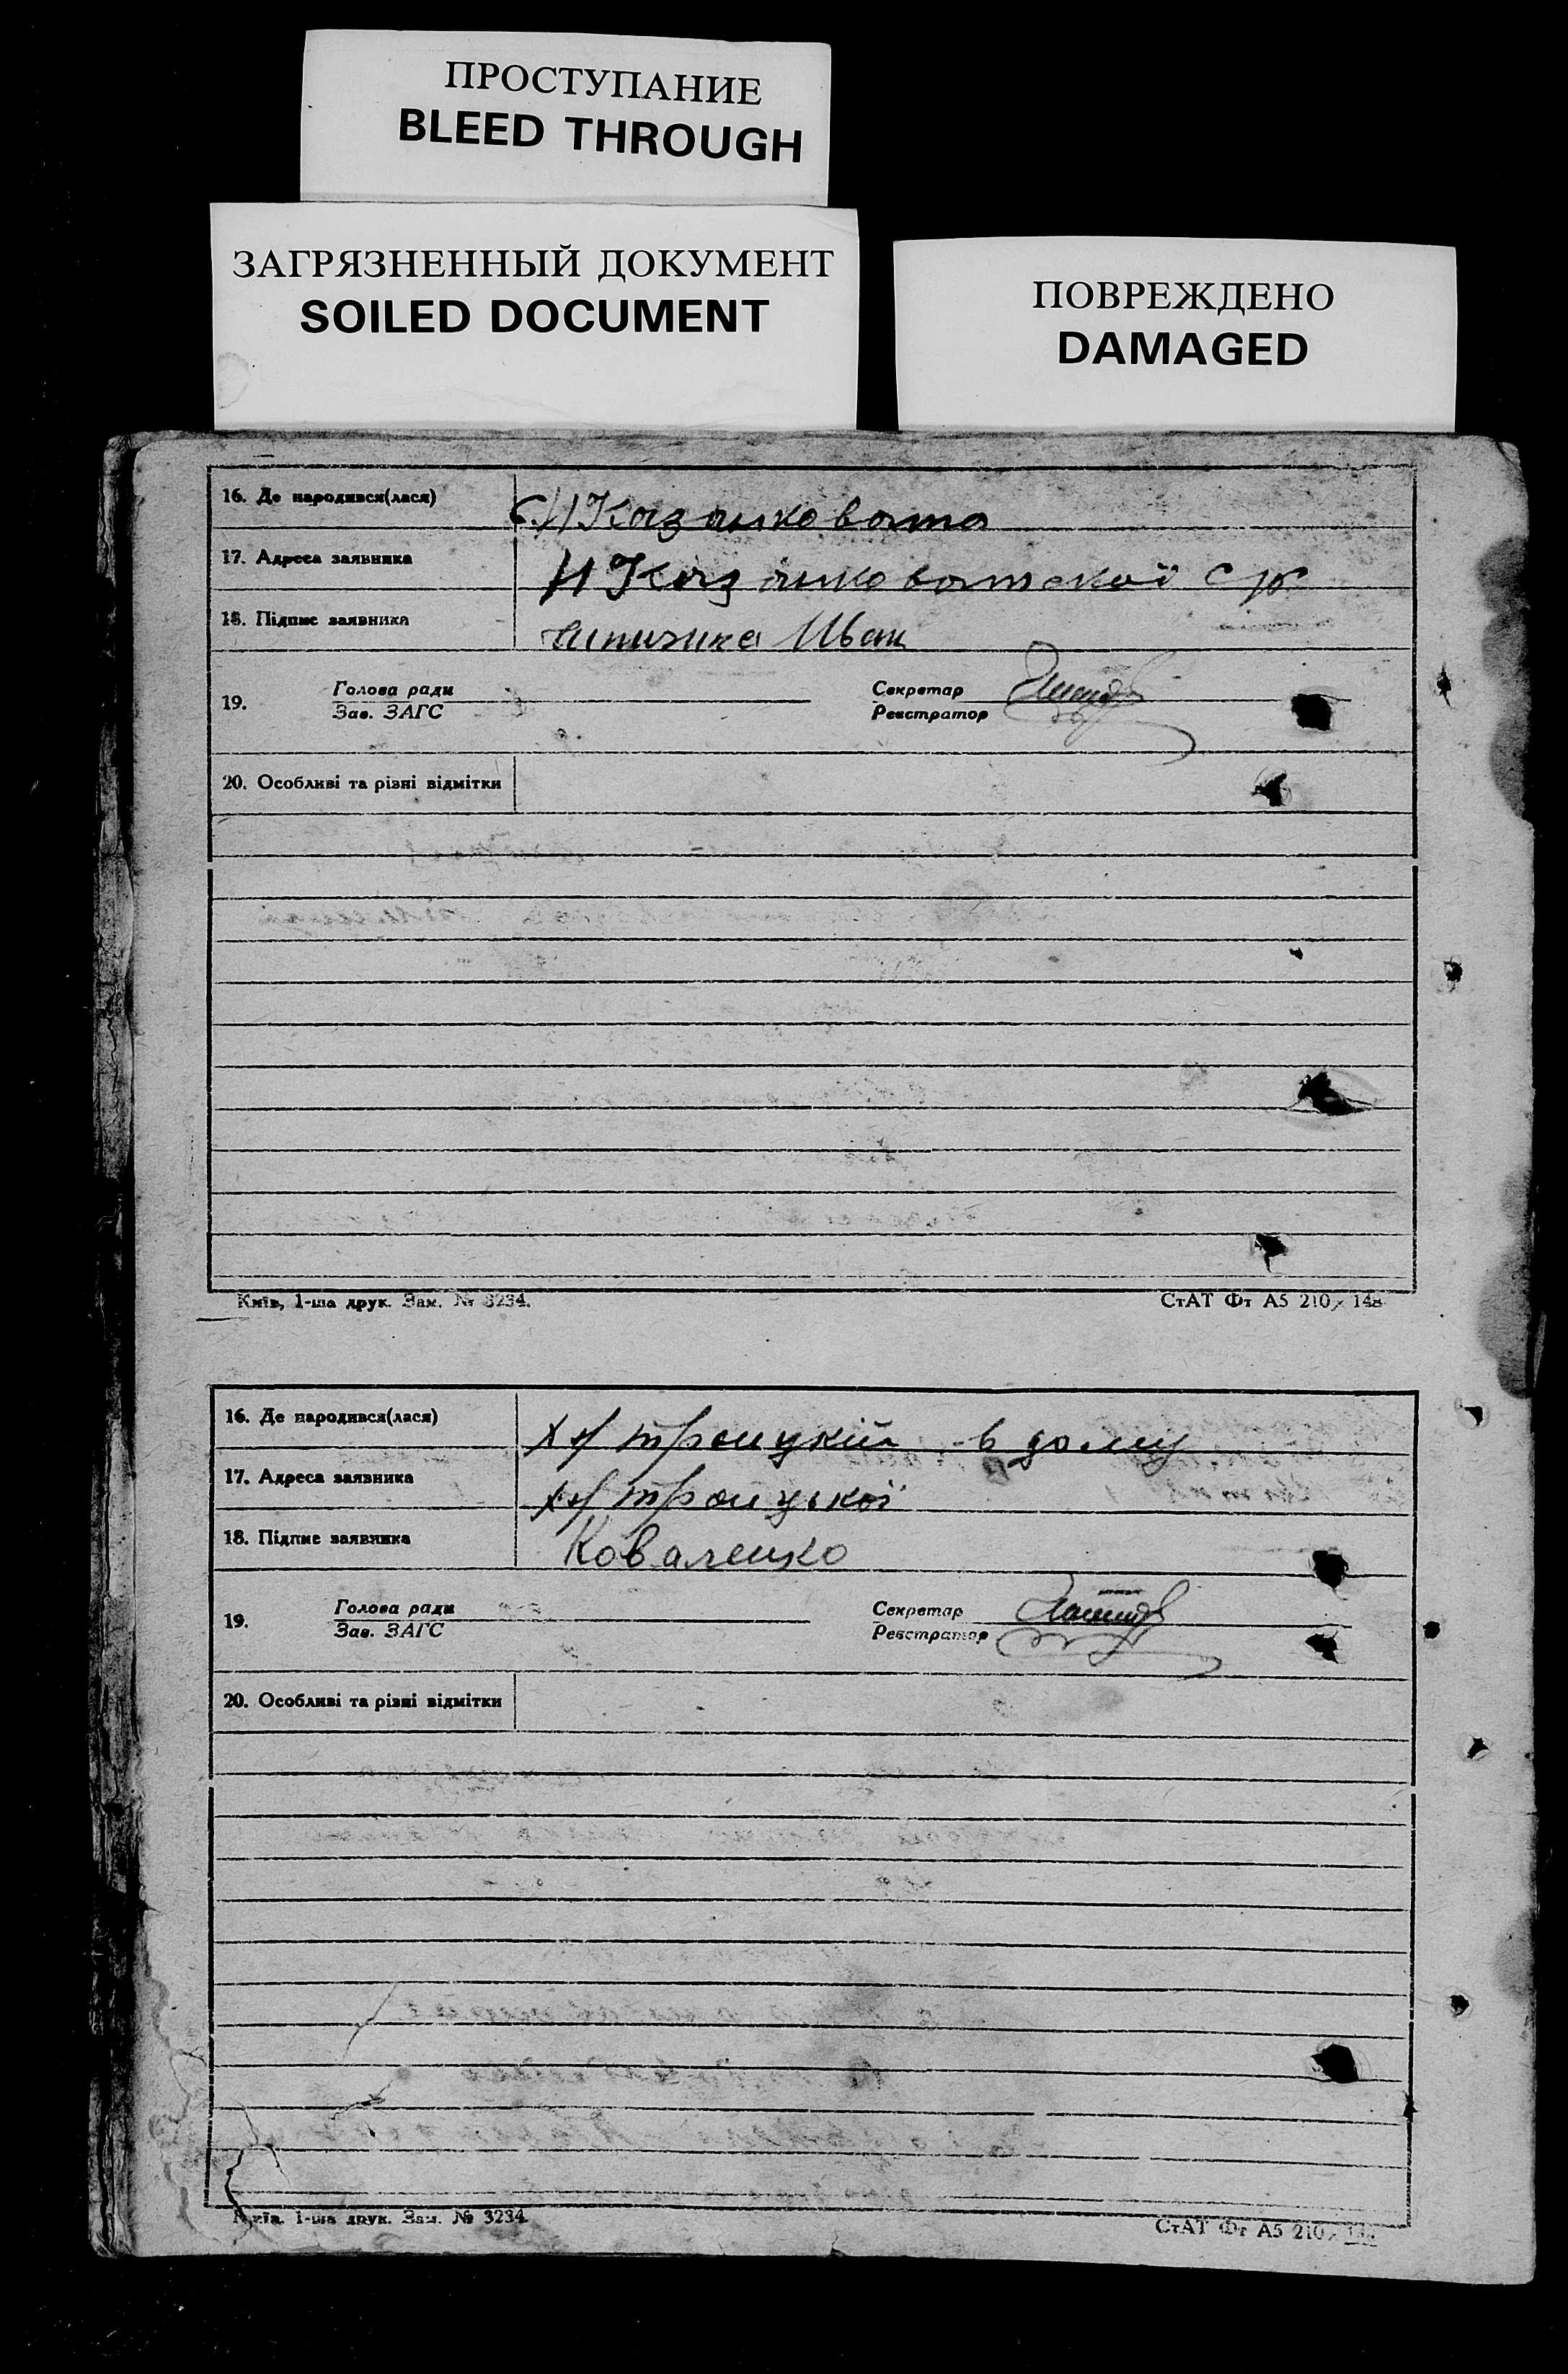 ПРОСТУПАНИЕ
BLEED THROUGH
ЗАГРЯЗНЕННЫЙ ДОКУМЕНТ
SOILED DOCUMENT
ПОВРЕЖДЕНО
DAMAGED
16. Де народився(лася)
17. Адреса заявника
18. Підпис заявника Иван
19. Голова ради Секретар
Зав. ЗАГС Реєстратор
20. Особливі та різні відмітки
Київ, 1-ша друк. Зам. № 3234. СтАТ Фт А5 210×148
16. Де народився(лася) х/ троицкій в дому
17. Адреса заявника х/ троицької
18. Підпис заявника Коваленко
19. Голова ради Секретар
Зав. ЗАГС Реєстратор
20. Особливі та різні відмітки
Київ. 1-ша друк. Зам. № 3234. СтАТ Фт А5 210×148